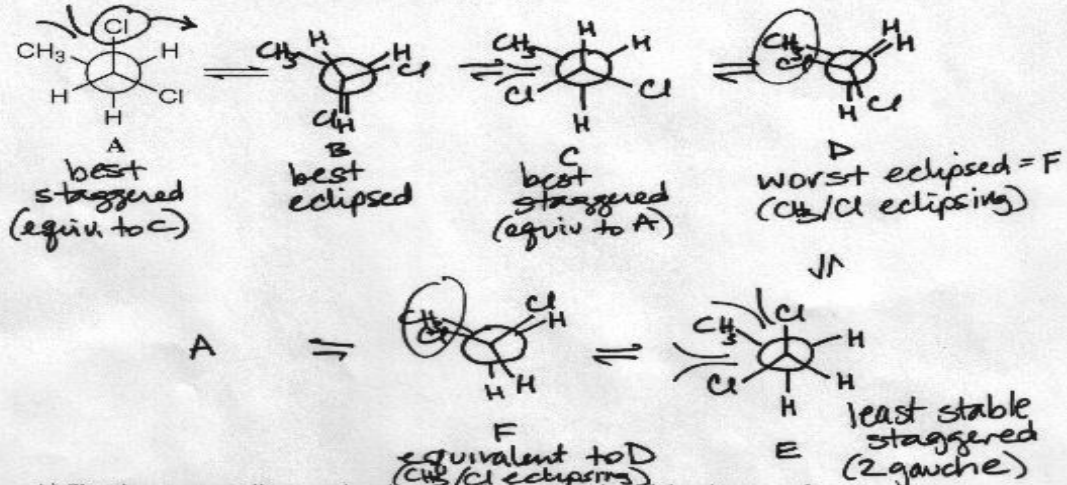 Cl
CH₃ H
H Cl
H
A
best
staggered
(equiv. to C)
H H
CH₃ Cl
Cl H
B
best
eclipsed
CH₃ H
Cl Cl
H
C
best
staggered
(equiv to A)
CH₃ H
Cl H
H Cl
D
worst eclipsed = F
(CH₃/Cl eclipsing)
A
CH₃ Cl
Cl H
H H
F
equivalent to D
(CH₃/Cl eclipsing)
Cl
CH₃ H
Cl H
H
E
least stable
staggered
(2 gauche)